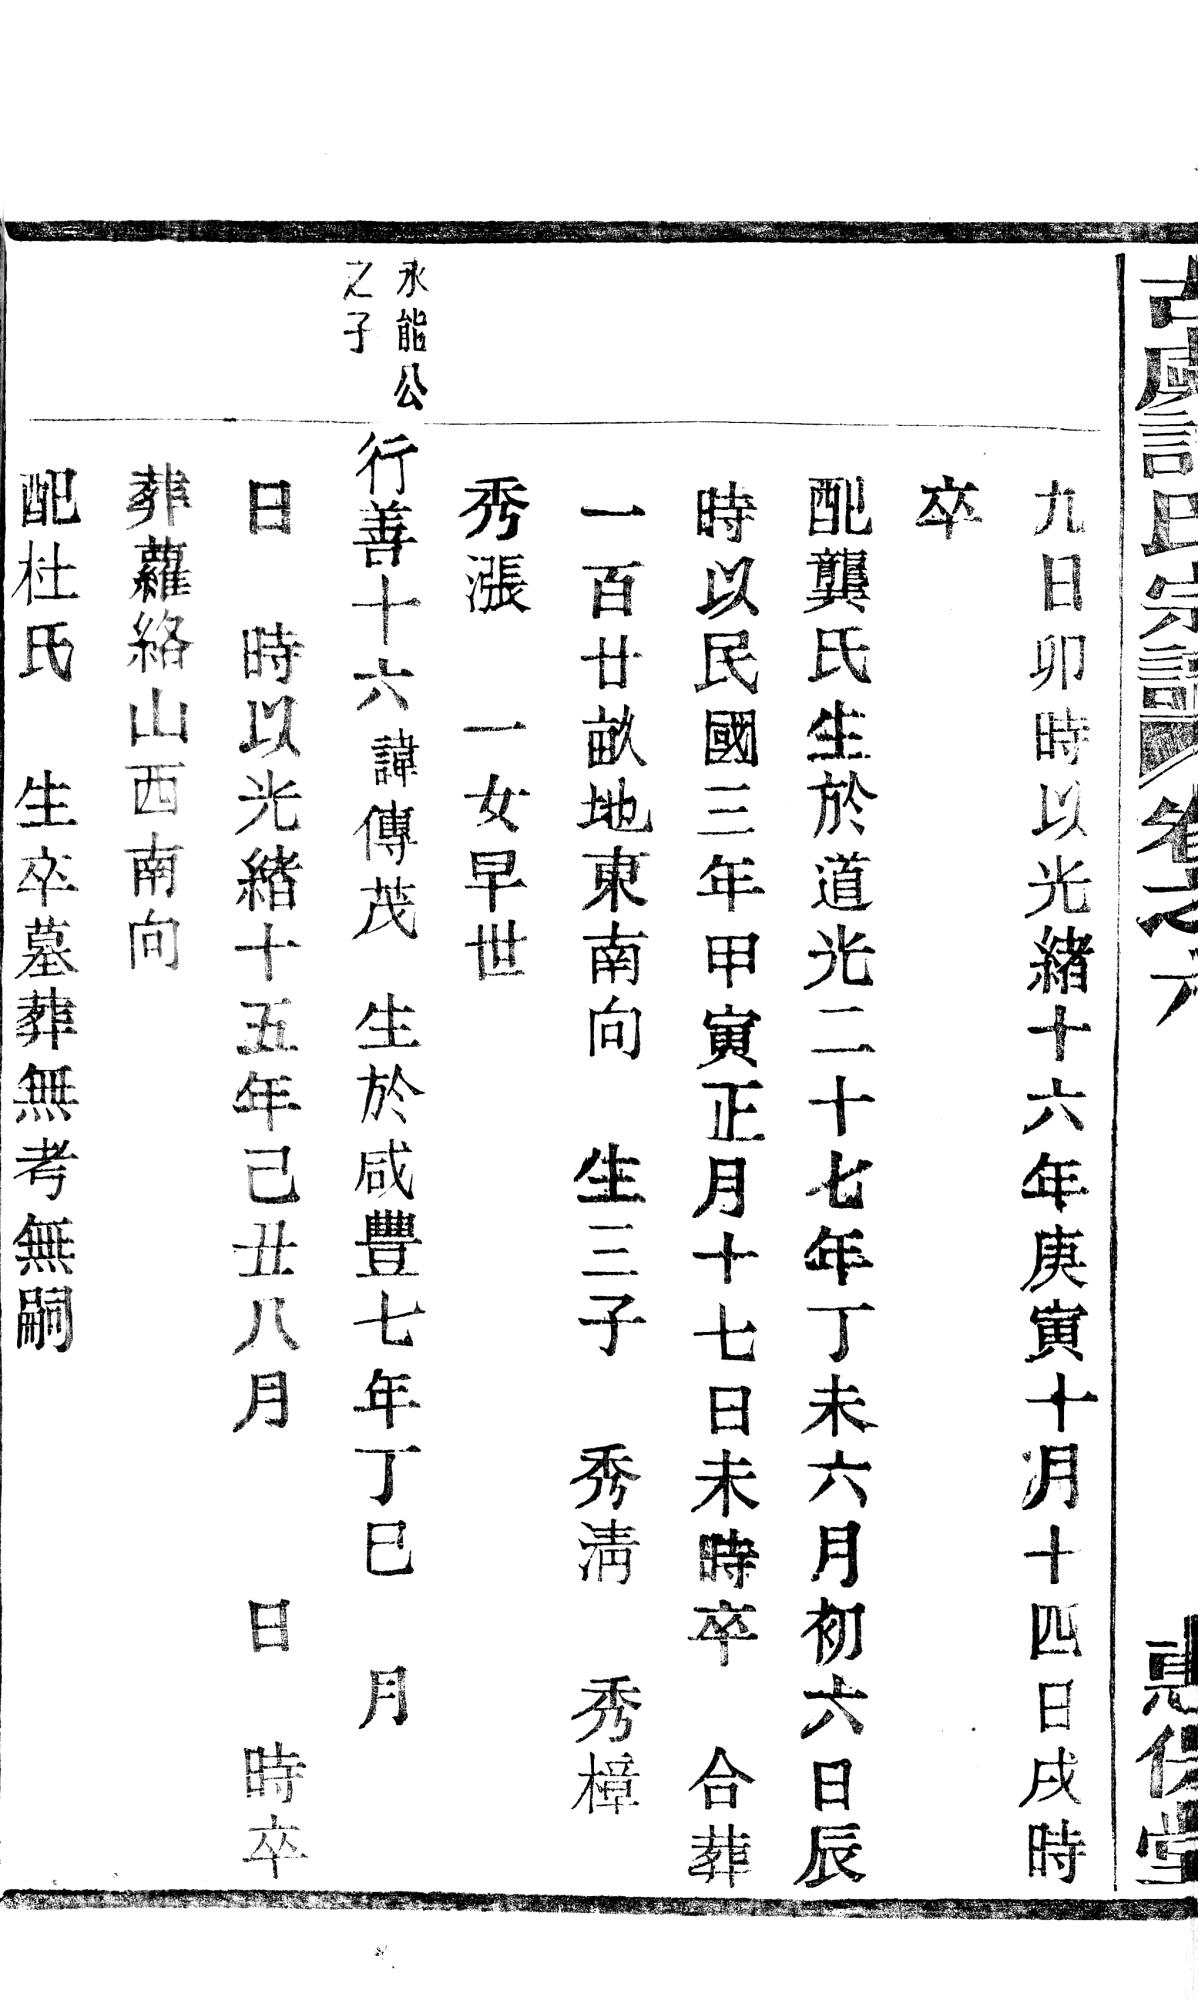 古虞許氏宗譜卷之六
惠保堂
九日卯時以光緒十六年庚寅十月十四日戌時
卒
配龔氏生於道光二十七年丁未六月初六日辰
時以民國三年甲寅正月十七日未時卒　合葬
一百廿畝地東南向　生三子　秀淸　秀樟
秀漲　一女早世
永能公
之子
行善十六諱傳茂　生於咸豐七年丁巳　月
日　時以光緒十五年己丑八月　日　時卒
葬蘿絡山西南向
配杜氏　生卒墓葬無考無嗣